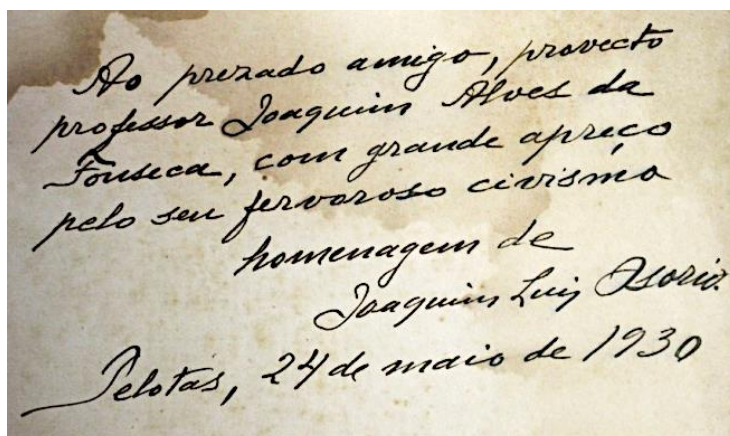 Ao prezado amigo, provecto
professor Joaquim Alves da
Fonseca, com grande apreço
pelo seu fervoroso civismo
homenagem de
Joaquim Luis Osorio.
Pelotas, 24 de maio de 1930